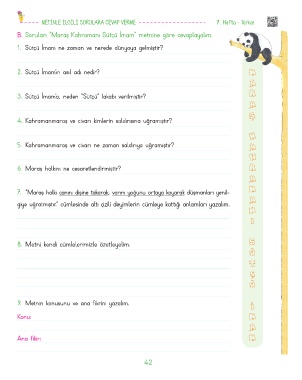 METİNLE İLGİLİ SORULARA CEVAP VERME
7. Hafta - Türkçe
B. Sorulan "Maraş Kahramanı Sütçü İmam" metnine göre cevaplayalım.
1. Sütçü İmam ne zaman ve nerede dünyaya gelmiştir?
2. Sütçü İmam'ın asıl adı nedir?
3. Sütçü İmam'a, neden "Sütçü" lakabı verilmiştir?
4. Kahramanmaraş ve civarı kimlerin saldırısına uğramıştır?
5. Kahramanmaraş ve civarı ne zaman saldırıya uğramıştır?
6. Maraş halkını ne cesaretlendirmiştir?
7. "Maraş halkı canını dişine takarak, varını yoğunu ortaya koyarak düşmanları yenil-
giye uğratmıştır" cümlesinde altı çizili deyimlerin cümleye kattığı anlamları yazalım.
8. Metni kendi cümlelerimizle özetleyelim.
9. Metnin konusunu ve ana fikrini yazalım.
Konu:
Ana fikir:
42